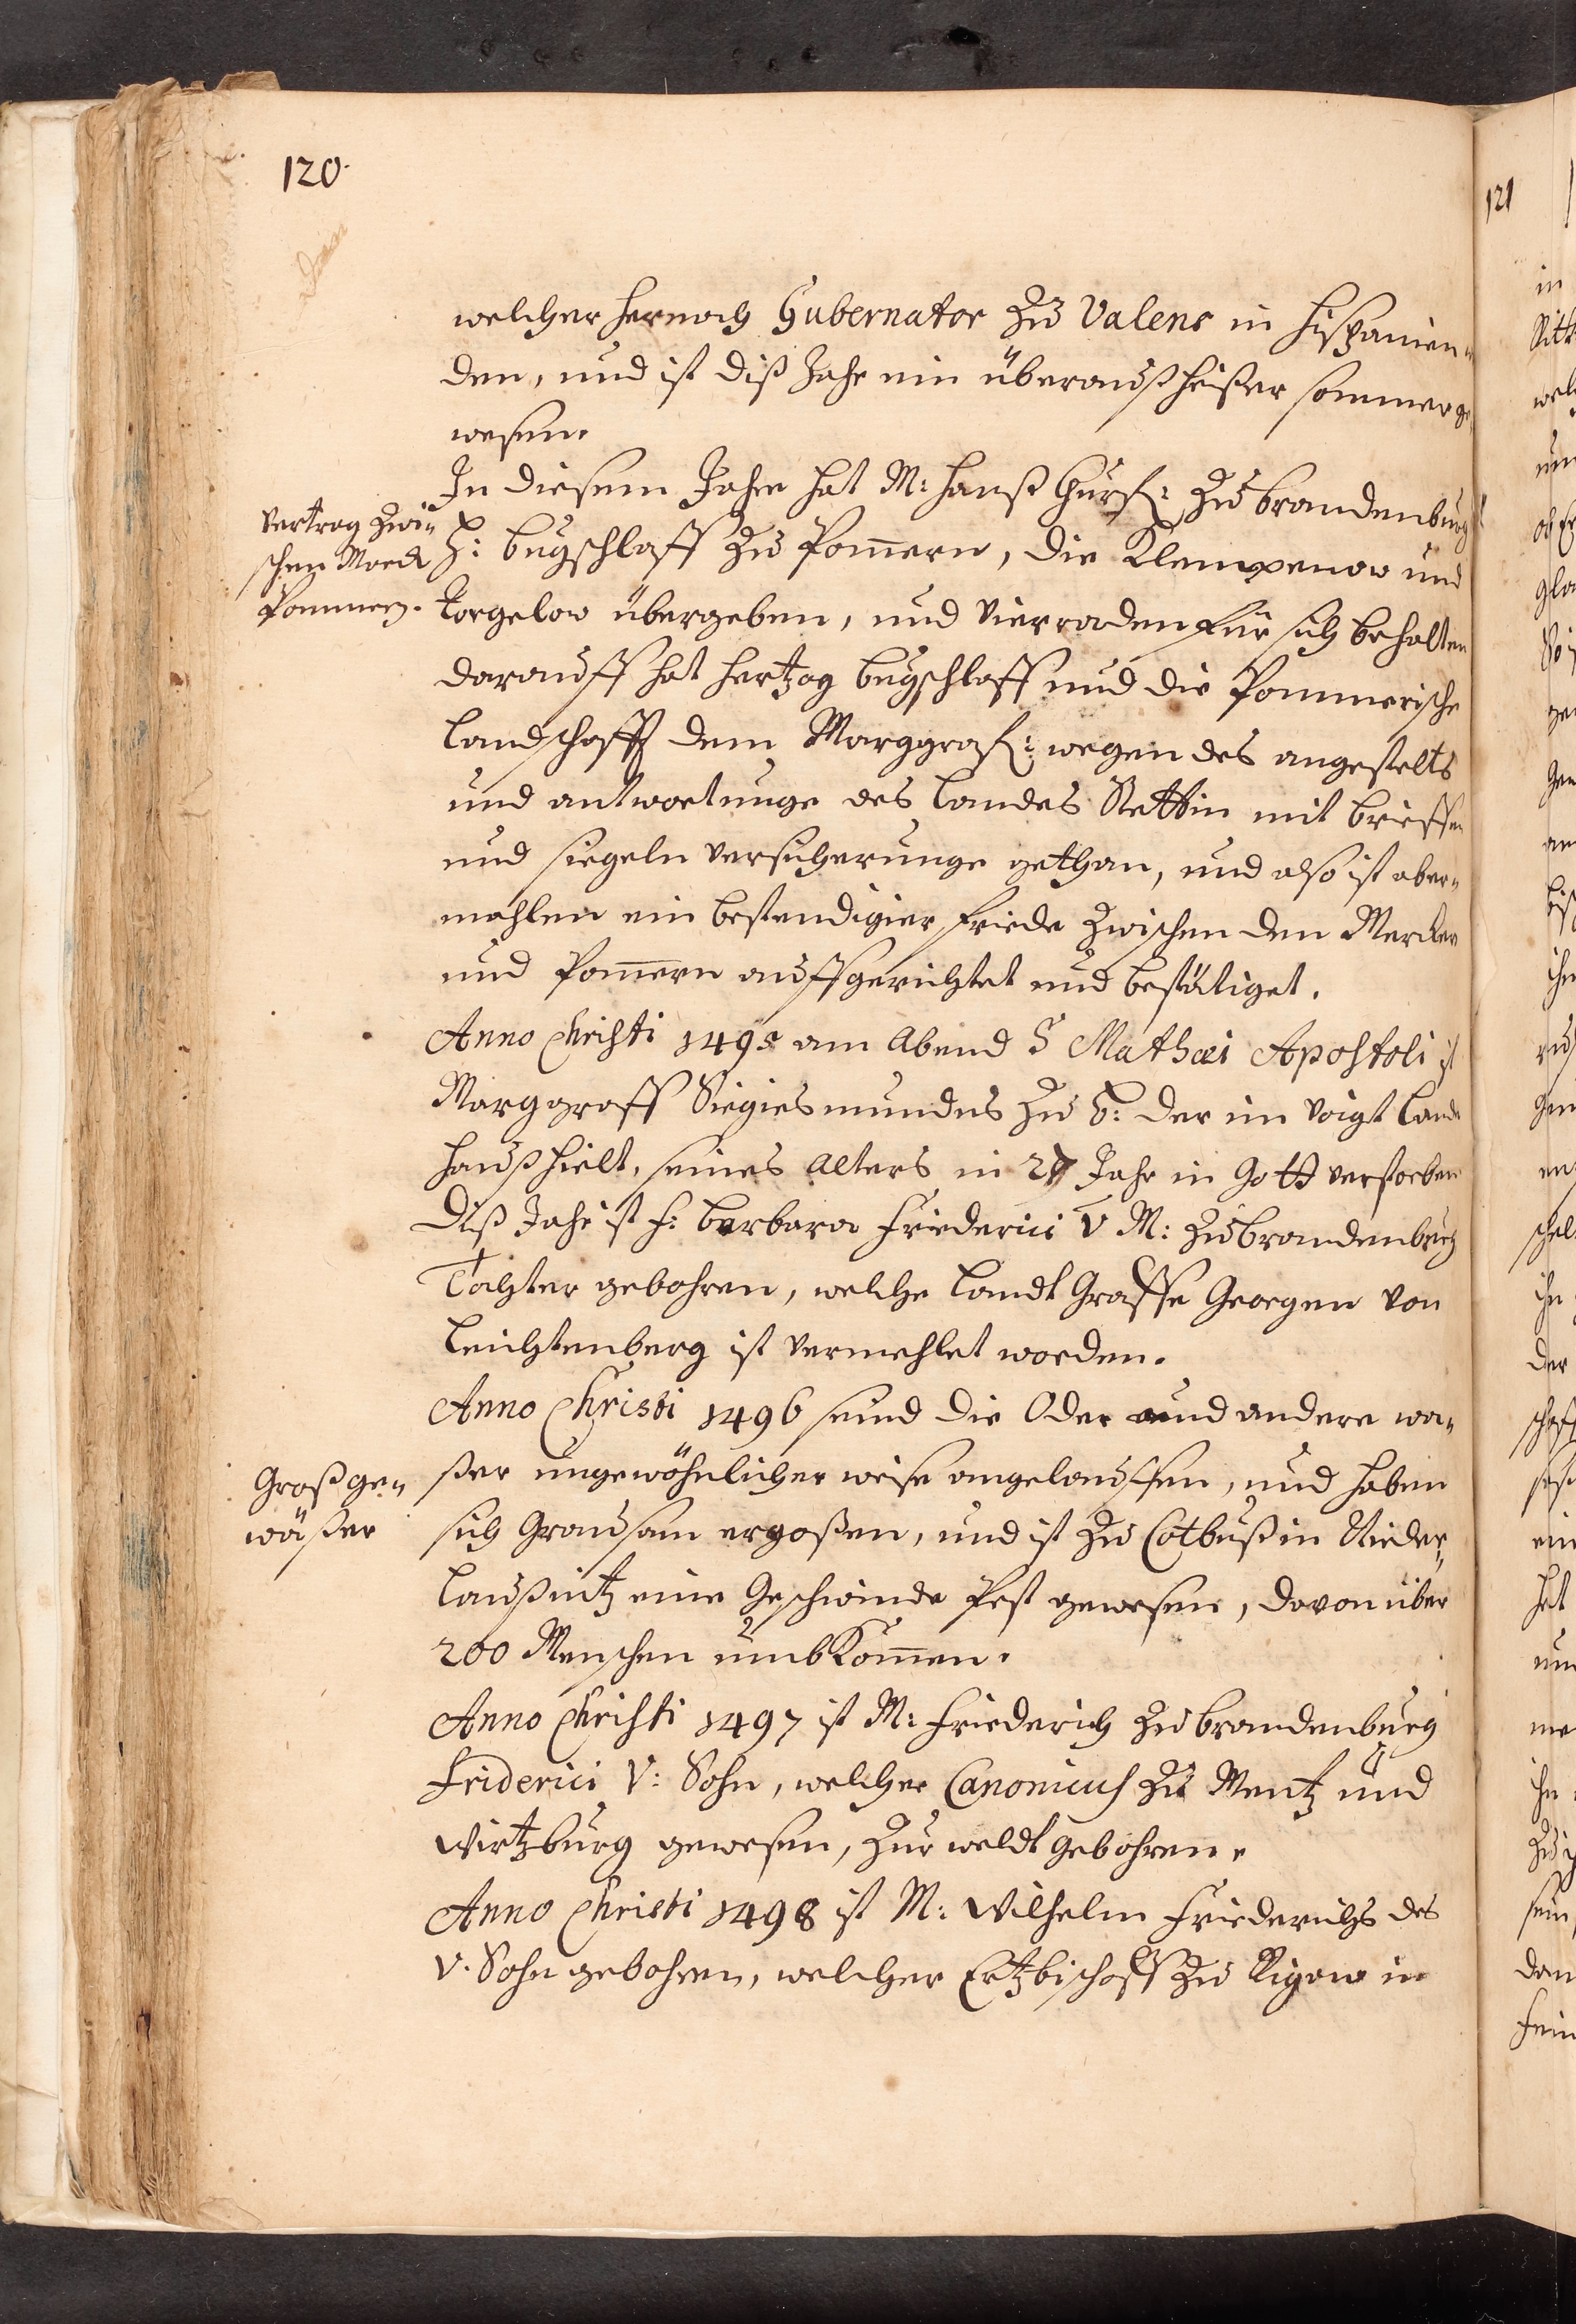 120.
welcher hernach Gubernator zu Valenc in Hispanien
den, und ist diß Jahr ein überauß heißer sommer ge,
wesen.
In diesem Jahre hat M: Hanß Churf: zu Brandenburg
Vertrag zwi-
schen Marck
Pommern.
H: Bugschlaff zu Pom̄ern, die Klempenow und
Torgelow übergeben, und Vierraden für sich behalten
darauff hat Hertzog Bugschlaff und die Pommerische
Landschafft dem Marggraf: wegen des angefelts
und antwortunge des Landes Stettin mit brieffen
und siegeln versicherunge gethan, und also ist aber-
mahlen ein bestendiger friede zwischen den Mercker
und Pom̄ern auffgerichtet und bestätiget.
Anno Christi 1495 am Abend S Mathæi Apostoli ist
Marggraff Siegiesmundus zu B: der im Voigt Lande
Haußhielt, seines Alters in 27 Jahr in Gott verstorben
Diß Jahr ist f: Barbara Friederici V M: zu Brandenburg
Tochter gebohren, welche Landt Graffe Georgen von
Leuchtenberg ist vermehlet worden.
Anno Christi 1496 seind die Oder und andere wa-
Groß ge-
wäßer
ßer ungewöhnlicher weise angelauffen, und haben
sich Grausam ergoßen, und ist zu Cotbuß in Nieder-
Laußnitz eine Geschwinde Pest gewesen, davon über
200 Menschen umbkom̄en.
Anno Christi 1497 ist M: Friederich zu Brandenburg
Friderici V: Sohn, welcher Canonicus zu Mentz und
Wirtzburg gewesen, zur weldt gebohren.
Anno Christi 1498 ist M: Wilhelm Friederichs des
V. Sohn gebohren, welcher Ertzbischoff zu Rigaw in
121